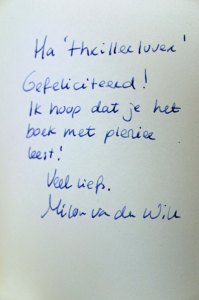 Ha 'thrillerlover'
Gefeliciteerd!
Ik hoop dat je het
boek met plezier
leest!
Veel liefs.
van der